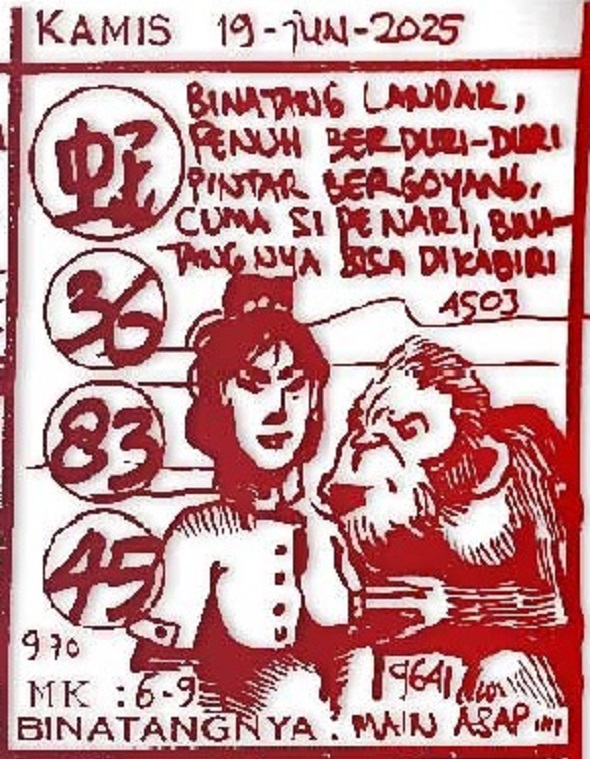 KAMIS 19-JUN-2025
BINATANG LANDAK,
PENUH BERDURI-DURI
PINTAR BERGOYANG,
CUMA SI PENARI, BINA-
TANGNYA BISA DIKABIRI
4503
36
83
45
970
MK : 6-9
9641
BINATANGNYA : MAIN ASAP